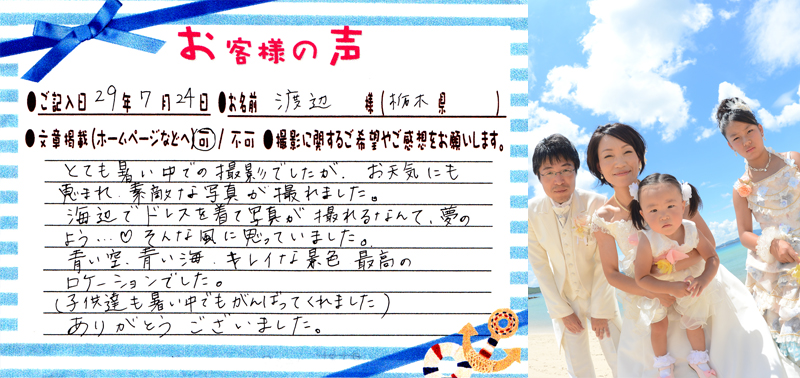 お客様の声
●ご記入日 29年 7月 24日 ●お名前 渡辺 様(栃木県 )
●文章掲載(ホームページなどへ)可/不可 ●撮影に関するご希望やご感想をお願いします。
とても暑い中での撮影でしたが、お天気にも
恵まれ、素敵な写真が撮れました。
海辺でドレスを着て写真が撮れるなんて、夢の
よう…♡そんな風に思っていました。
青い空、青い海、キレイな景色 最高の
ロケーションでした。
(子供達も暑い中でもがんばってくれました)
ありがとうございました。